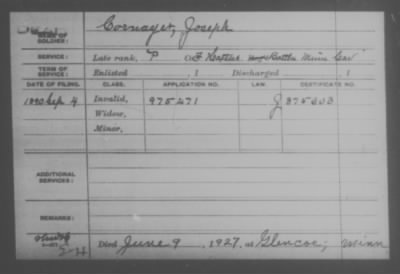 Cornager, Joseph
NAME OF
SOLDIER:
SERVICE: Late rank, P Co F Hatches Battn Minn Cav
TERM OF
SERVICE: Enlisted , 1 Discharged , 1
DATE OF FILING. CLASS. APPLICATION NO. LAW. CERTIFICATE NO.
1890 Sep 4 Invalid, 975271 J
Widow,
Minor,
ADDITIONAL
SERVICES:
REMARKS:
Died June 9, 1927, at Glencoe, Minn